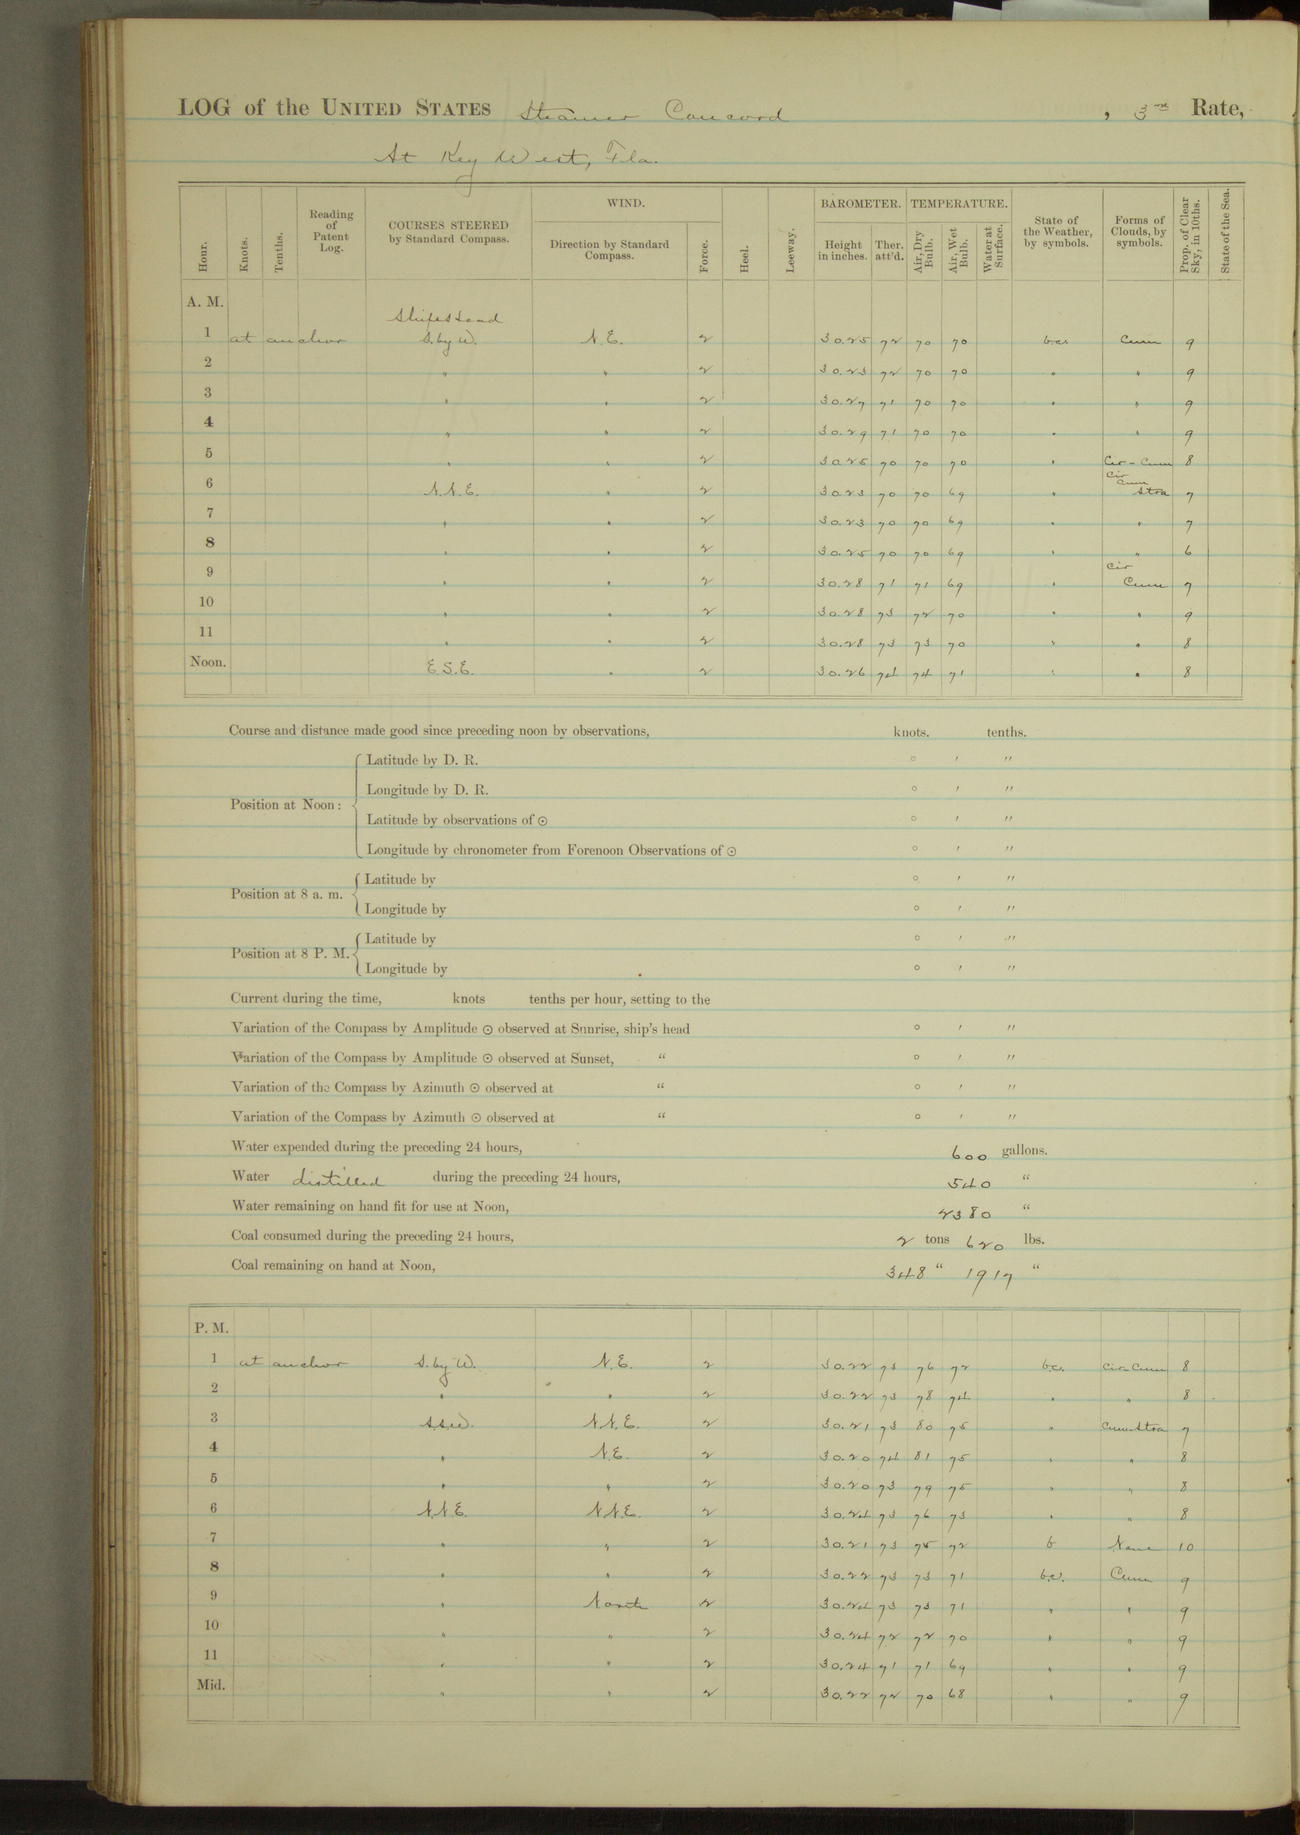 LOG of the UNITED STATES Steamer Concord , 3rd Rate,
At Key West, Fla.
Hour. Knots. Tenths. Reading of Patent Log. COURSES STEERED by Standard Compass. WIND. Direction by Standard Compass. Force. Heel. Leeway. BAROMETER. Height in inches. Ther. att'd. TEMPERATURE. Air, Dry Bulb. Air, Wet Bulb. Water at Surface. State of the Weather, by symbols. Forms of Clouds, by symbols. Prop. of Clear Sky, in 10ths. State of the Sea.
A. M.
Ships head
1 at anchor S. by W. N.E. 2 30.25 72 70 70 b.c. Cum 9
2 " " 2 30.23 72 70 70 " " 9
3 " " 2 30.27 71 70 70 " " 9
4 " " 2 30.29 71 70 70 " " 9
5 " " 2 30.25 70 70 70 " Cir-Cum 8
6 N.N.E. " 2 30.23 70 70 69 " Cir Cum Stra 7
7 " " 2 30.23 70 70 69 " " 7
8 " " 2 30.25 70 70 69 " " 6
9 " " 2 30.28 71 71 69 " Cir Cum 7
10 " " 2 30.28 73 72 70 " " 9
11 " " 2 30.28 73 73 70 " " 8
Noon. E.S.E. " 2 30.26 74 74 71 " " 8
Course and distance made good since preceding noon by observations, knots. tenths.
Latitude by D. R. ° ′ ″
Longitude by D. R. ° ′ ″
Position at Noon:
Latitude by observations of ☉ ° ′ ″
Longitude by chronometer from Forenoon Observations of ☉ ° ′ ″
Latitude by ° ′ ″
Position at 8 a. m.
Longitude by ° ′ ″
Latitude by ° ′ ″
Position at 8 P. M.
Longitude by ° ′ ″
Current during the time, knots tenths per hour, setting to the
Variation of the Compass by Amplitude ☉ observed at Sunrise, ship's head ° ′ ″
Variation of the Compass by Amplitude ☉ observed at Sunset, " ° ′ ″
Variation of the Compass by Azimuth ☉ observed at " ° ′ ″
Variation of the Compass by Azimuth ☉ observed at " ° ′ ″
Water expended during the preceding 24 hours, 600 gallons.
Water distilled during the preceding 24 hours, 540 "
Water remaining on hand fit for use at Noon, 2380 "
Coal consumed during the preceding 24 hours, 2 tons 620 lbs.
Coal remaining on hand at Noon, 348 " 1917 "
P. M.
1 at anchor S. by W. N.E. 2 30.22 73 76 72 b.c. Cir-Cum 8
2 " " 2 30.22 73 78 74 " " 8
3 S.S.W. N.N.E. 2 30.21 73 80 75 " Cum-Stra 7
4 " N.E. 2 30.20 74 81 75 " " 8
5 " " 2 30.20 73 79 75 " " 8
6 N.N.E. N.N.E. 2 30.24 73 76 73 " " 8
7 " " 2 30.21 73 75 72 b None 10
8 " " 2 30.22 73 73 71 b.c. Cum 9
9 " North 2 30.24 73 73 71 " " 9
10 " " 2 30.24 72 72 70 " " 9
11 " " 2 30.24 71 71 69 " " 9
Mid. " " 2 30.22 72 70 68 " " 9